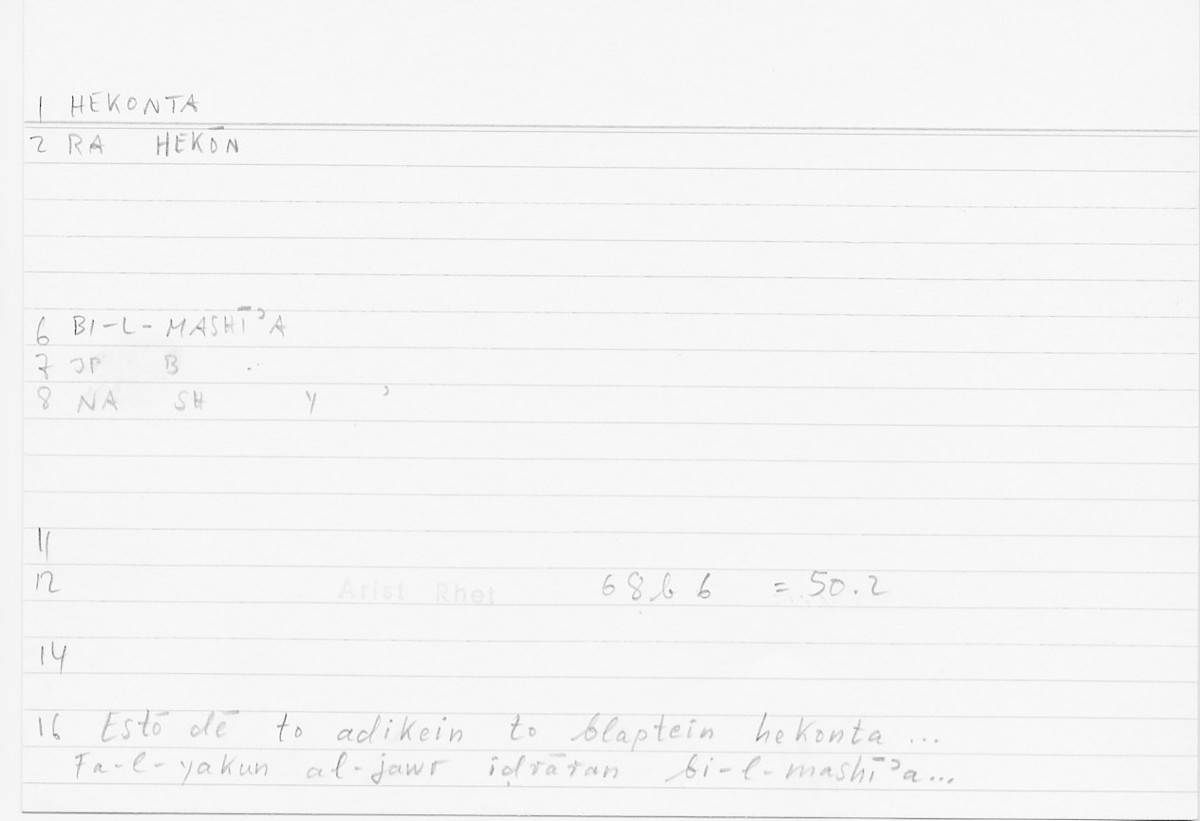 1 HEKONTA
2 RA HEKŌN
6 BI-L-MASHĪʾA
7 JP B .
8 NA SH Y ʾ
11
12 Arist Rhet 68b6 = 50.2
14
16 Estō dē to adikein to blaptein hekonta ...
Fa-l-yakun al-jawr iḍrāran bi-l-mashīʾa...